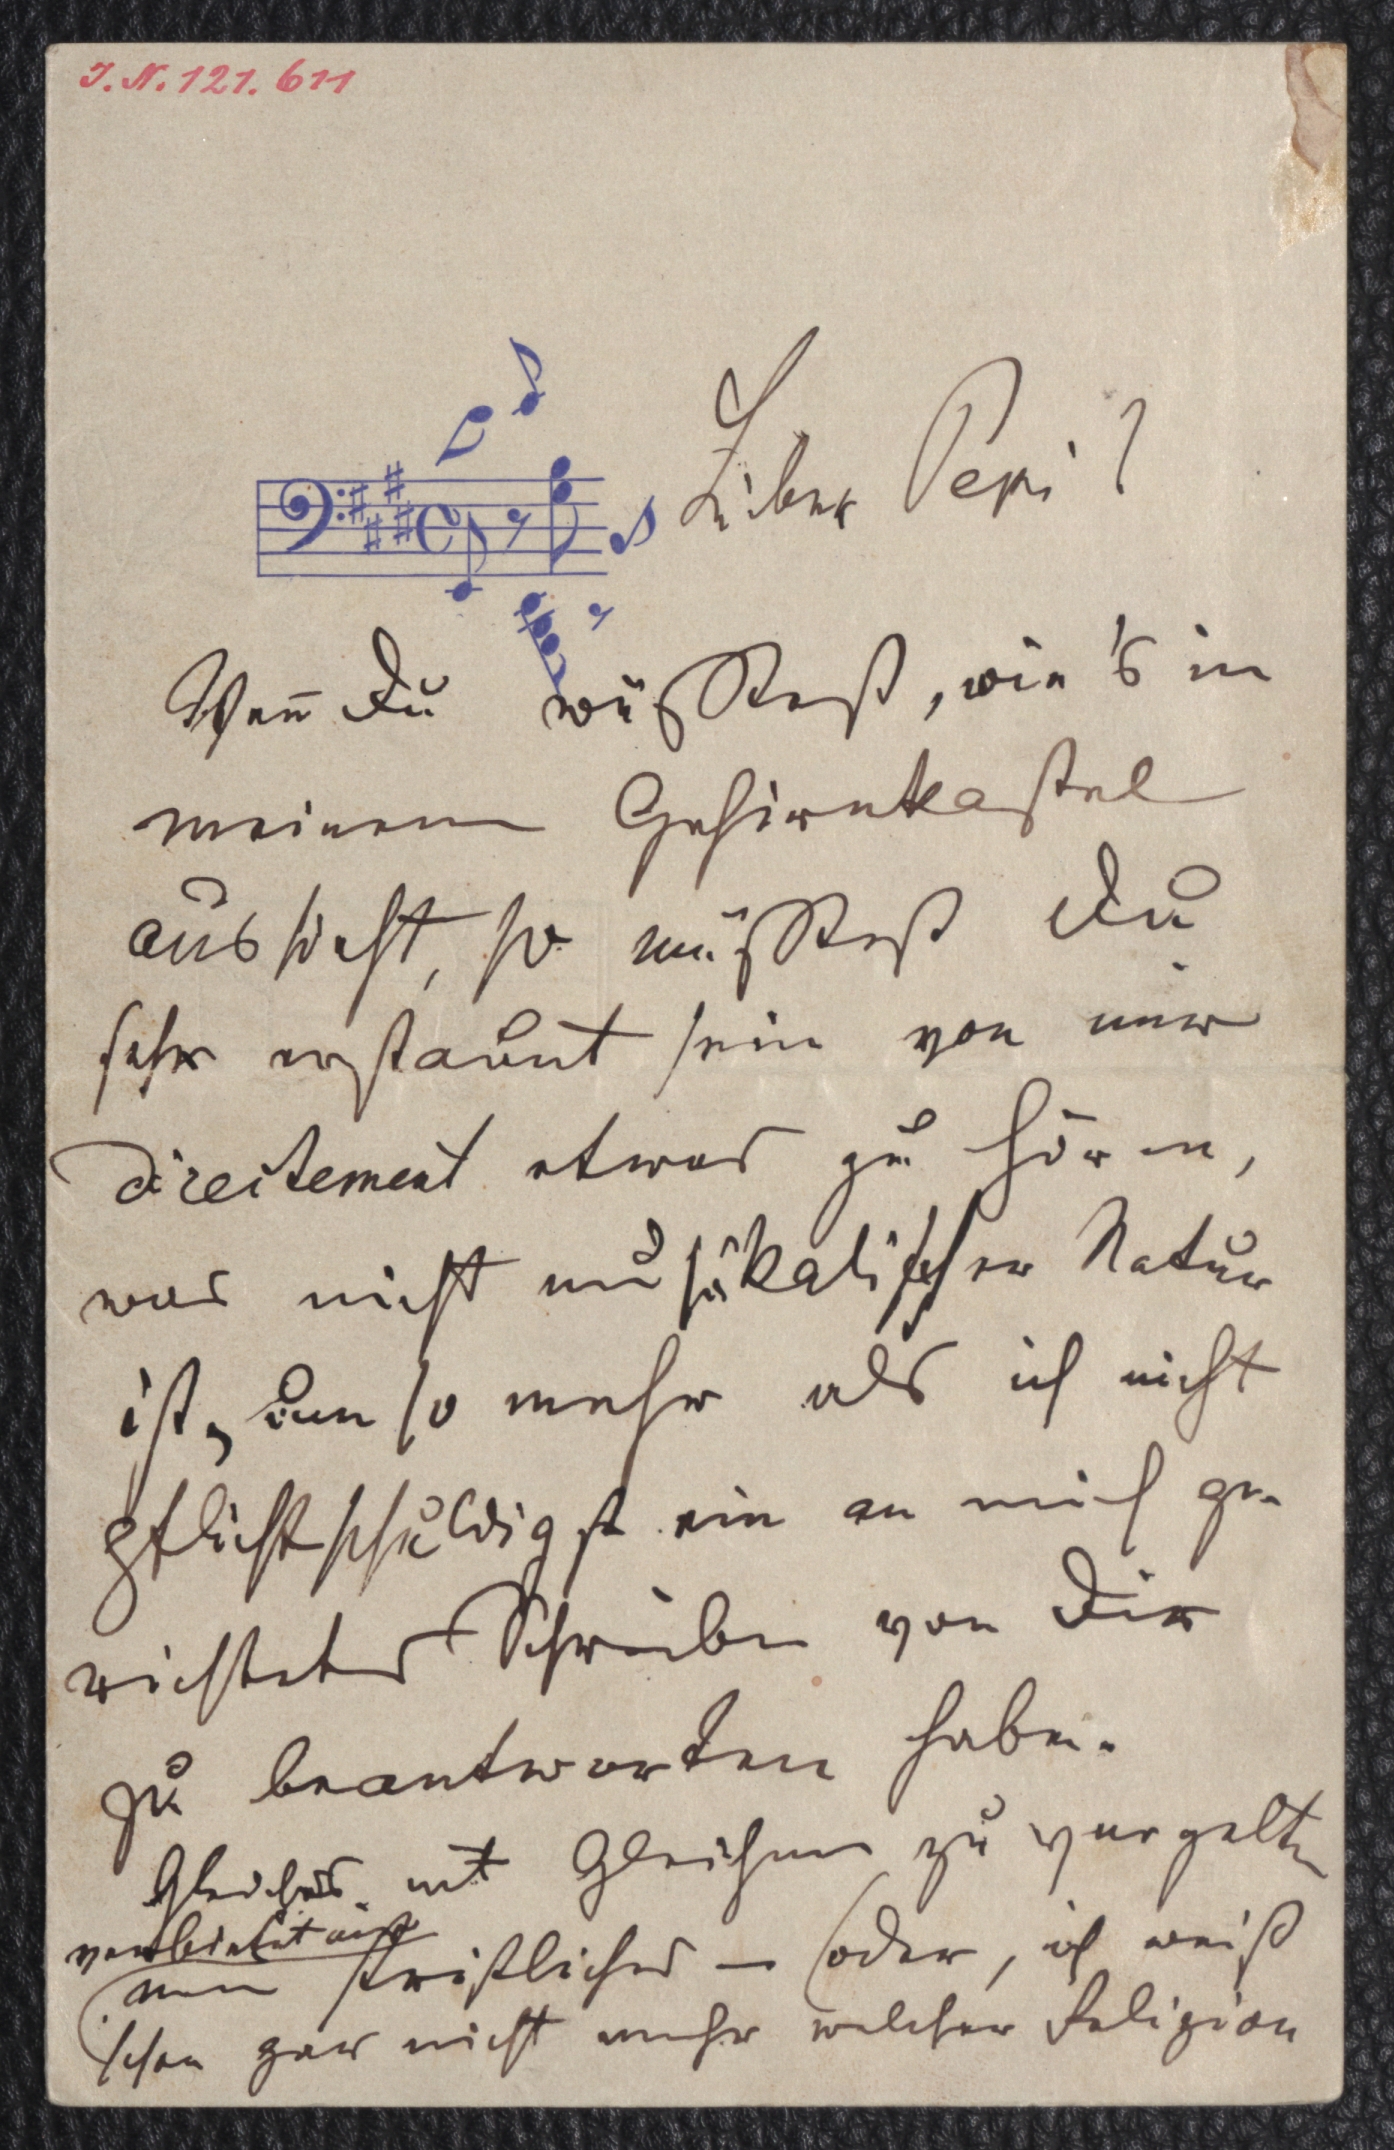 I. N. 121. 611
Lieber Pepi!
Wen̄ Du wüsstest, wie's in
meinem Gehirnkastel
aussieht, so müsstest Du
sehr erstaunt sein von mir
directement etwas zu hören,
was nicht musikalischer Natur
ist, um so mehr als ich nicht
pflichtschuldigst ein an mich ge-
richtetes Schreiben von Dir
zu beantworten habe.
Gleiches mit Gleichem zu vergelten
verbietet
mein kristliches – (oder, ich weiß
schon gar nicht mehr welcher Religion